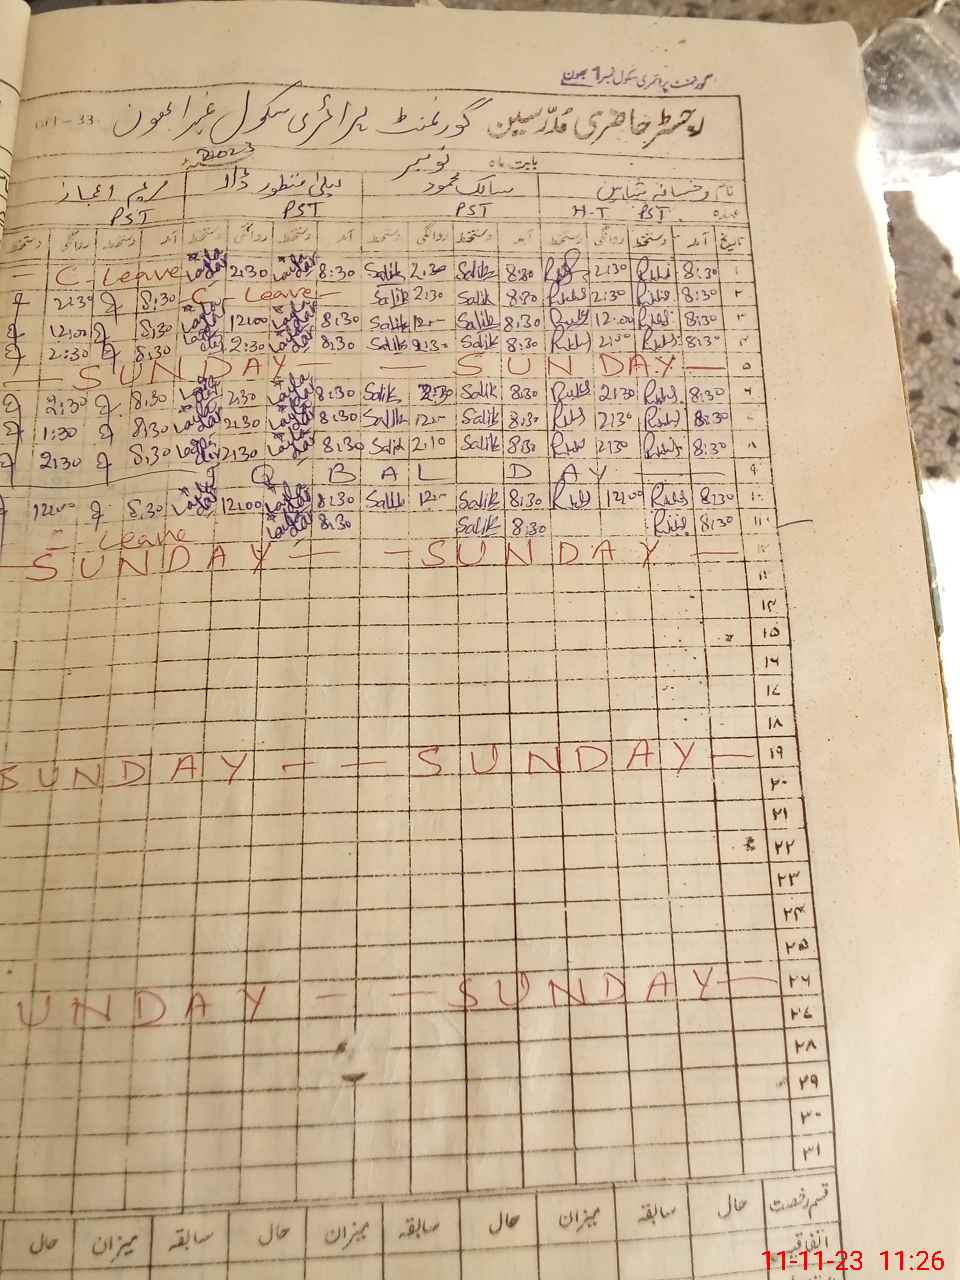 گورنمنٹ پرائمری سکول نمبر 1 بھون
رجسٹر حاضری مدرسین گورنمنٹ پرائمری سکول نمبر 1 بھون
بابت ماہ نومبر 2023
نام رخسانہ شاہین سالک محمود لیلیٰ منظور ڈار مریم اعجاز
عہدہ PST H-T PST PST PST
تاریخ آمد دستخط روانگی دستخط آمد دستخط روانگی دستخط آمد دستخط روانگی دستخط آمد دستخط روانگی دستخط
۱ 8:30 2:30 8:30 Salik 2:30 Salik 8:30 Laila dar 2:30 Laila dar C-Leave
۲ 8:30 2:30 8:30 Salik 2:30 Salik C-Leave 8:30 2:30
۳ 8:30 12:00 8:30 Salik 12-- Salik 8:30 Laila dar 12:00 Laila dar 8:30 12:00
۴ 8:30 8:30 Salik 2:30 Salik 8:30 Laila dar 2:30 Laila dar 8:30 2:30
۵ SUNDAY SUNDAY
۶ 8:30 2:30 8:30 Salik 2:30 Salik 8:30 Laila dar 2:30 Laila dar 8:30 2:30
۷ 8:30 2:30 8:30 Salik 12-- Salik 8:30 Laila dar 2:30 Laila dar 8:30 1:30
۸ 8:30 2:30 8:30 Salik 2:10 Salik 8:30 Laila dar 2:30 Laila dar 8:30 2:30
۹ QBAL DAY
۱۰ 8:30 12:00 8:30 Salik 12-- Salik 8:30 Laila dar 12:00 Laila dar 8:30 12:00
۱۱ 8:30 8:30 Salik 8:30 Laila dar Leave
۱۲ SUNDAY SUNDAY
۱۳
۱۴
۱۵
۱۶
۱۷
۱۸
۱۹ SUNDAY SUNDAY
۲۰
۲۱
۲۲
۲۳
۲۴
۲۵
۲۶ SUNDAY UNDAY
۲۷
۲۸
۲۹
۳۰
۳۱
قسم رخصت حال سابقہ میزان حال سابقہ میزان حال سابقہ میزان حال
اتفاقیہ
11-11-23 11:26